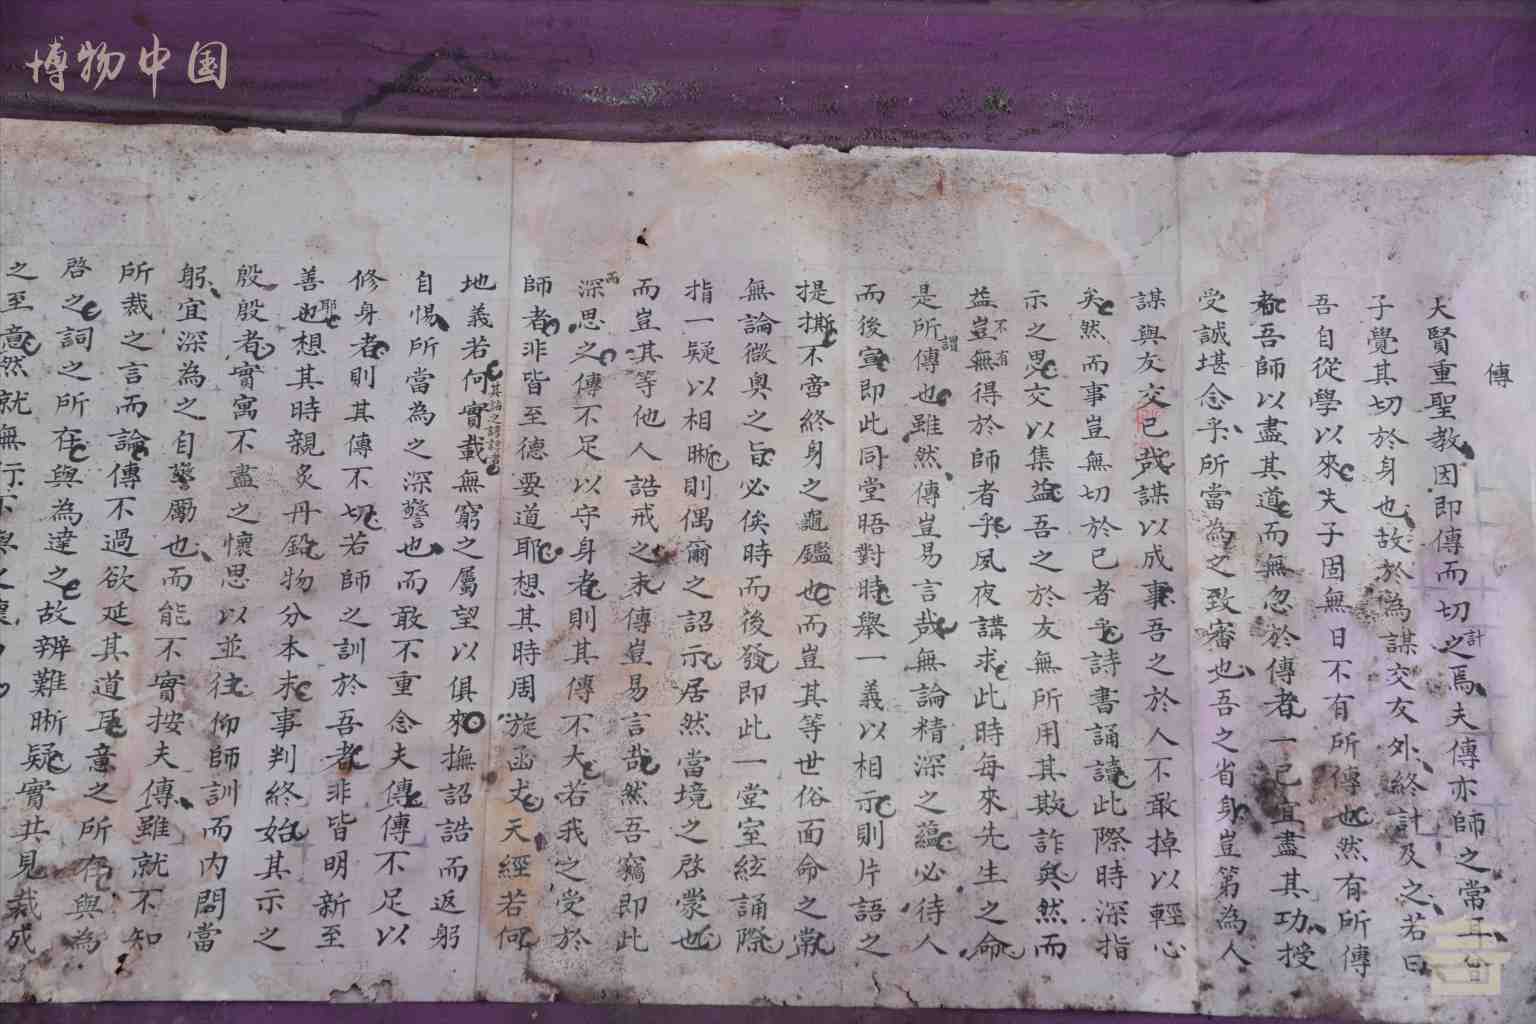 博物中国
傳
大賢重聖教因即傳而切計之焉夫傳亦師之常耳曾
子覺其切於身也故於為謀交友外終計及之若曰
吾自從學以來夫子固無日不有所傳也然有所傳
者吾師以盡其道而無忽於傳者一己宜盡其功授
受誠堪念乎所當為之致審也吾之省身豈第為人
謀與友交已哉謀以成事吾之於人不敢掉以輕心
矣然而事豈無切於己者乎詩書誦讀此際時深指
示之思交以集益吾之於友無所用其欺詐矣然而
益豈不有無得於師者乎夙夜講求此時每來先生之命
是所謂傳也雖然傳豈易言哉無論精深之蘊必待人
而後宣即此同堂晤對時舉一義以相示則片語之
提撕不啻終身之龜鑑也而豈其等世俗面命之常
無論微奧之旨必俟時而後發即此一堂室絃誦際
指一疑以相晰則偶爾之詔示居然當境之啓蒙也
而豈其等他人誥戒之末傳豈易言哉然吾竊即此
而深思之傳不足以守身者則其傳不大若我之受於
師者非皆至德要道耶想其時周旋函丈天經若何
地義若何實載無窮之屬望以俱來撫詔誥而返躬
自惕所當為之深警也而敢不重念夫傳傳不足以
修身者則其傳不切若師之訓於吾者非皆明新至
善也耶想其時親炙丹鉛物分本末事判終始其示之
殷殷者實寓不盡之懷思以並往仰師訓而內問當
躬宜深為之自警厲也而能不實按夫傳雖就不知
所裁之言而論傳不過欲延其道耳意之所存與為
啓之詞之所在與為達之故辨難晰疑實共見裁成
之至意然就無行不與之懷